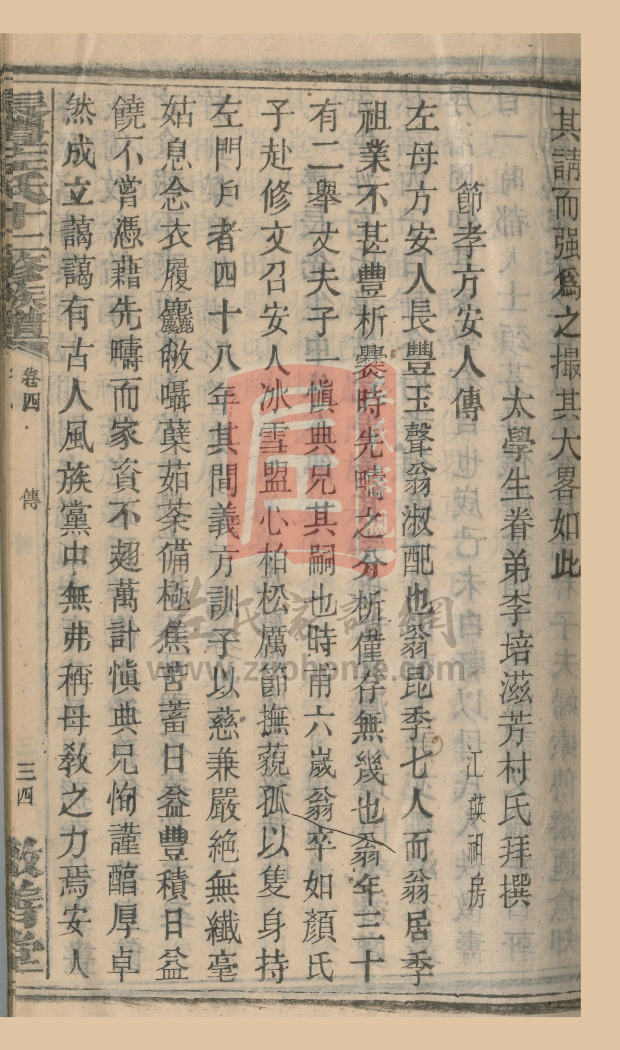 其請而强爲之撮其大畧如此
太學生眷弟李培滋芳村氏拜撰
節孝方安人傳
江英祖房
左母方安人長豐玉聲翁淑配也翁昆季七人而翁居季
祖業不甚豐析爨時先疇之分析僅存無幾也翁年三十
有二舉丈夫子一愼典兄其嗣也時甫六歲翁卒如顏氏
子赴修文召安人冰雪盟心柏松厲節撫藐孤以隻身持
左門戶者四十八年其間義方訓子以慈兼嚴絶無纖毫
姑息念衣履麤敝囁蘗茹荼備極焦苦蓄日益豐積日益
饒不嘗憑藉先疇而家資不趐萬計愼典兄恂謹醕厚卓
然成立藹藹有古人風族黨中無弗稱母敎之力焉安人
左氏十二修族譜
卷四
傳
三四
敬善堂
左氏家譜網
www.zuohome.com